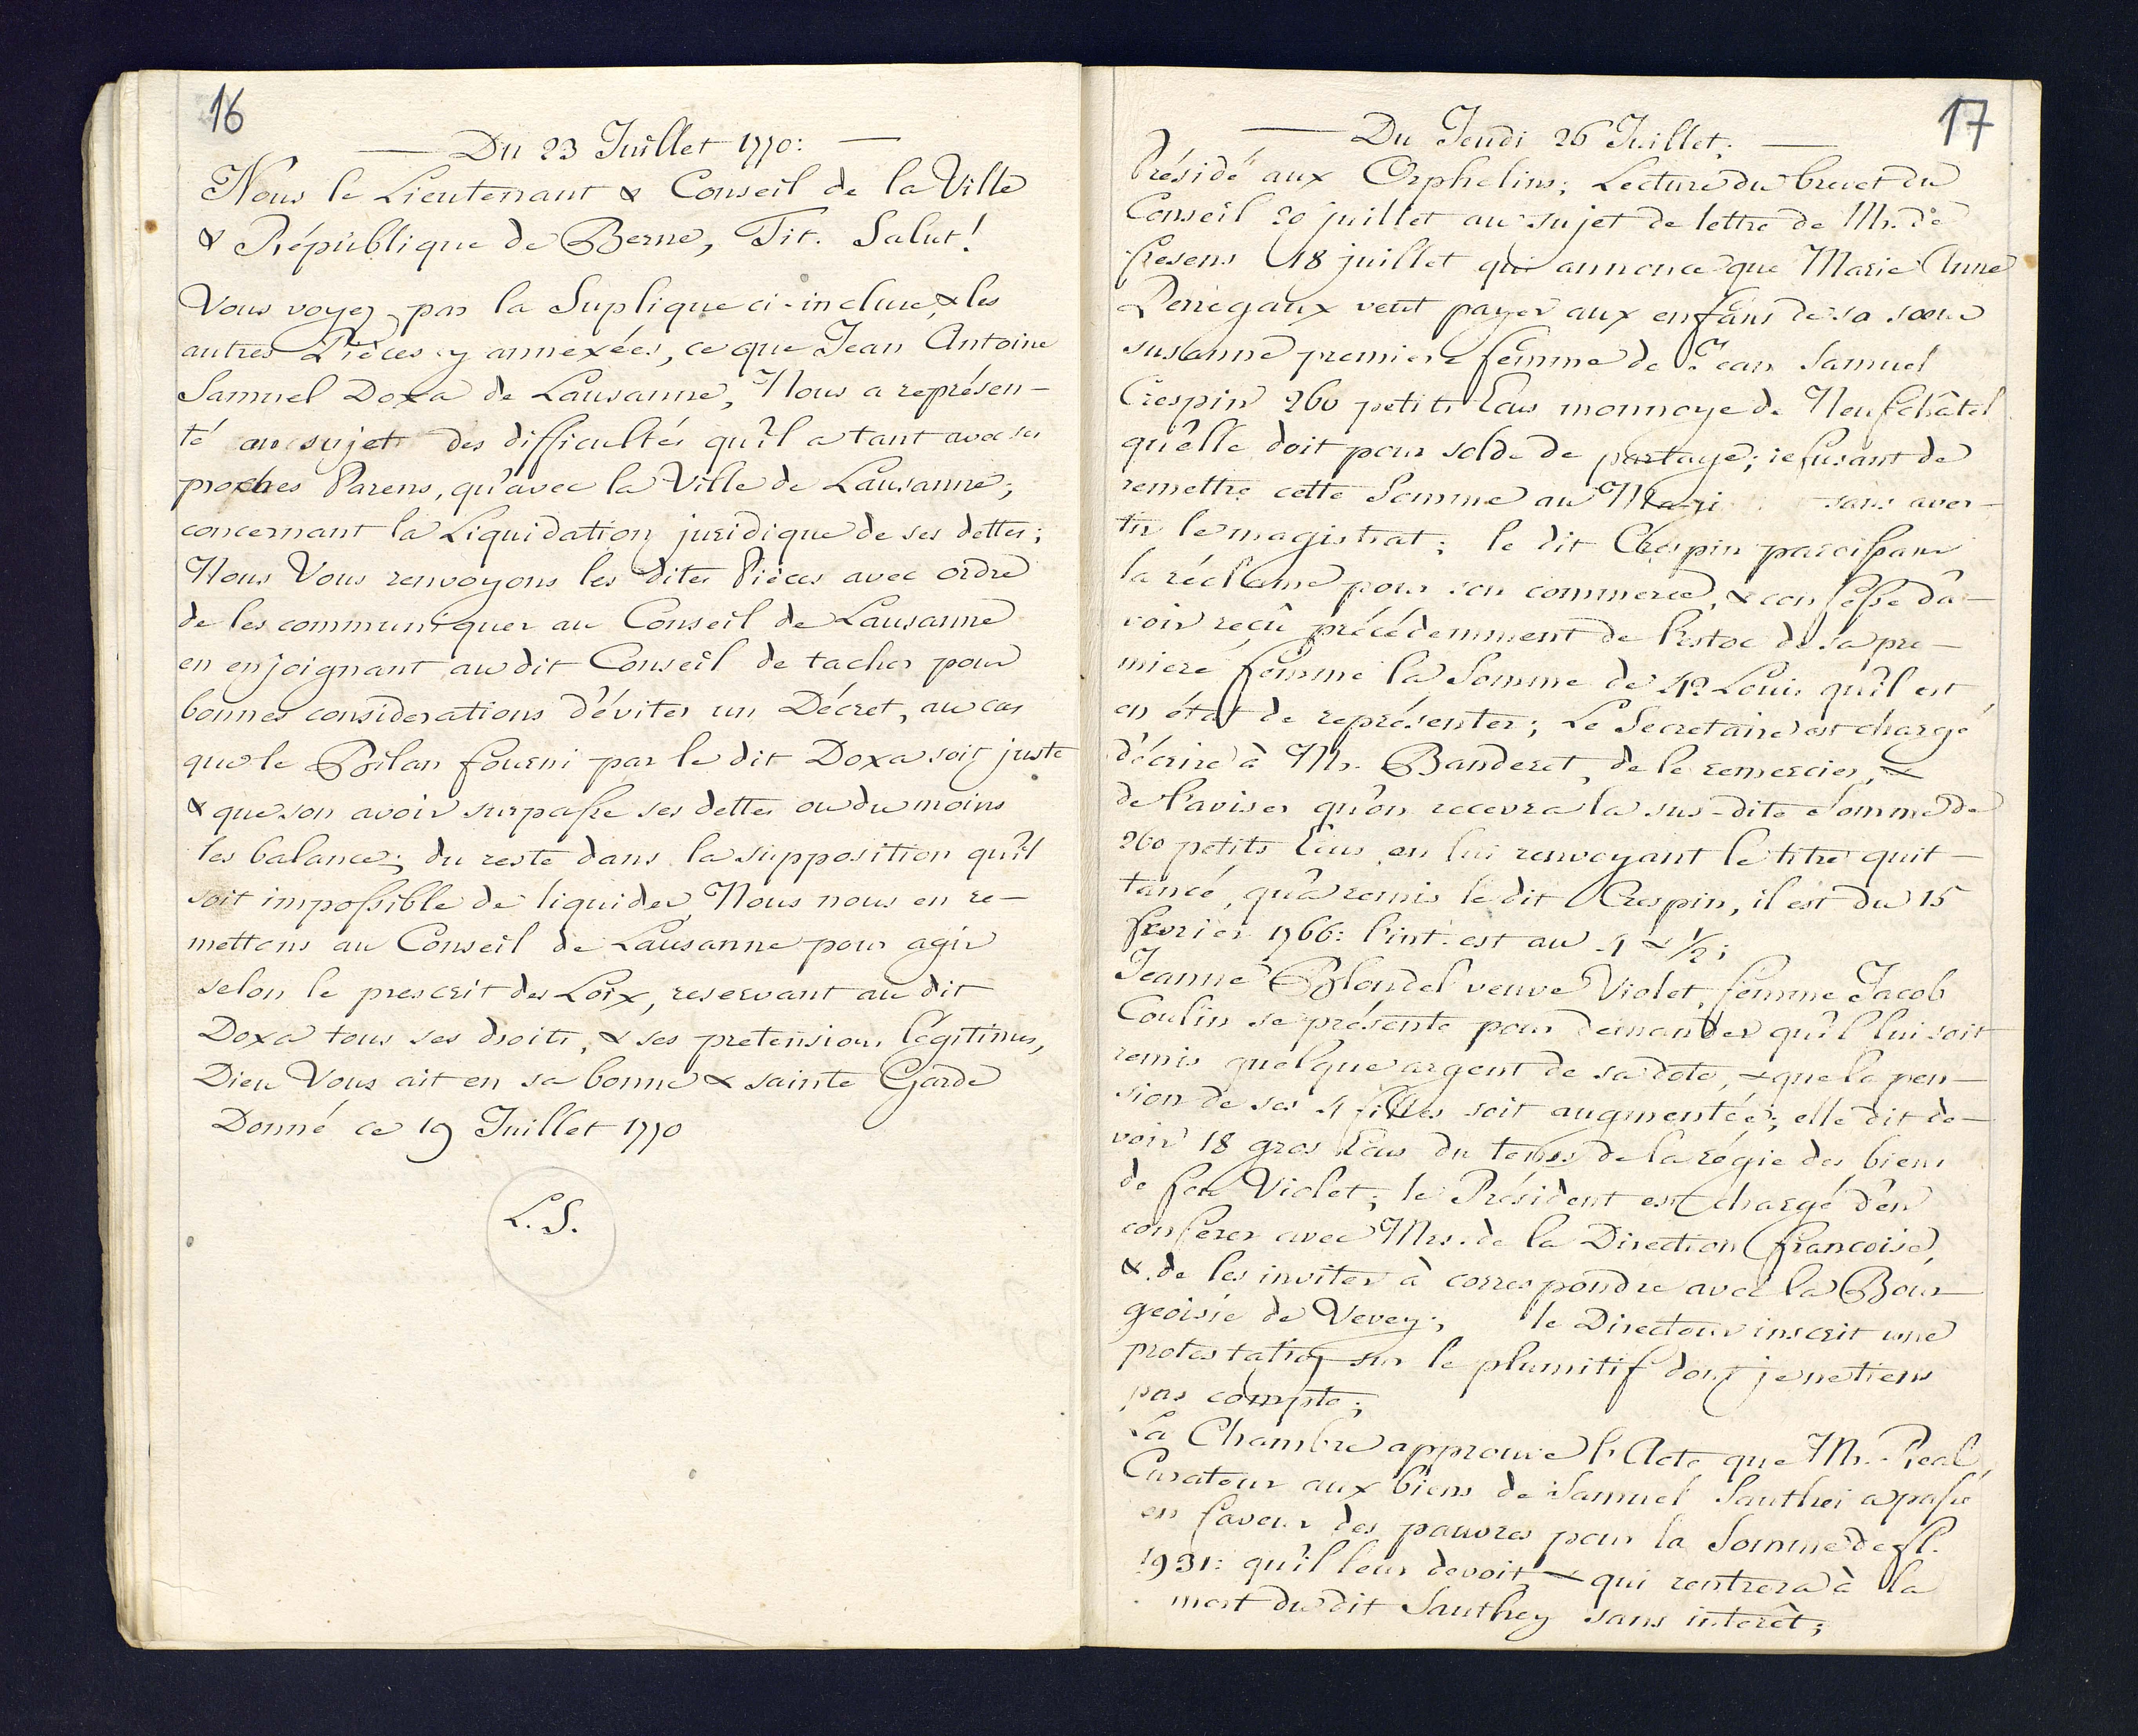 16
Du 23 Juillet 1770:
Nous le Lieutenant & Conseil de la Ville
& République de Berne, Tit. Salut!
Vous voyez par la Suplique ci-incluse, & les
autres Pièces y annexées, ce que Jean Antoine
Samuel Doxa de Lausanne, Nous a représen-
té au sujet des difficultés qu'il a tant avec ses
proches Parens, qu'avec la Ville de Lausanne;
concernant la Liquidation juridique de ses dettes;
Nous Vous renvoyons les dites Pièces avec ordre
de les communiquer au Conseil de Lausanne
en enjoignant au dit Conseil de tacher pour
bonnes considerations d'éviter un Décret, au cas
que le Bilan fourni par le dit Doxa soit juste
& que son avoir surpasse ses dettes ou du moins
les balance; du reste dans la supposition qu'il
soit impossible de liquider Nous nous en re-
mettons au Conseil de Lausanne pour agir
selon le prescrit des Loix, reservant au dit
Doxa tous ses droits, & ses pretensions légitimes,
Dieu Vous ait en sa bonne & sainte Garde
Donné ce 19 Juillet 1770
L.S.
17
Du Jeudi 26 Juillet;
Présidé aux Orphelins; Lecture du brevet du
Conseil 20 juillet au sujet de lettre de Mr. de
18 juillet qui annonce que Marie Anne
Perregaux veut payer aux enfans de sa soeur
susanne premiere femme de Jean Samuel
Crespin 260 petits Ecus monnoye de Neufchâtel
qu'elle doit pour solde de partage; refusant de
remettre cette Somme au Mari sans aver-
tir le magistrat; le dit Crespin paroissant
la réclame pour son commerce, & confesse d'a-
voir reçû précédemment de l'estoc de sa pre-
miere femme la Somme de 42 Louis qu'il est
en état de représenter; Le Secretaire est chargé
d'écrire à Mr. Banderet, de le remercier, &
de l'aviser qu'on recevra la sus-dite Somme de
260 petits Ecus en lui renvoyant le titre quit-
tancé, qu'a remis le dit Crespin, il est du 15
fevrier 1766: l'int. est au 4 & 1/2;
Jeanne Blondel veuve Violet, femme Jacob
Coulin se présente pour demander qu'il lui soit
remis quelque argent de sa dote, & que la pen-
sion de ses 4 filles soit augmentée; elle dit de-
voir 18 gros Ecus du tems de la régie des biens
de feu Violet; le Président est chargé d'en
conferer avec Mrs. de la Direction francoise,
& de les inviter à correspondre avec la Bour-
geoisie de Vevey; le Directeur inscrit une
protestation sur le plumitif dont je ne tiens
pas compte;
La Chambre approuve l'Acte que Mr. Real
Curateur aux biens de Samuel Sauthei a passé
en faveur des pauvres pour la Somme de fl.
1931: qu'il leur devoit & qui rentrera à la
mort du dit Sauthey sans interêt;